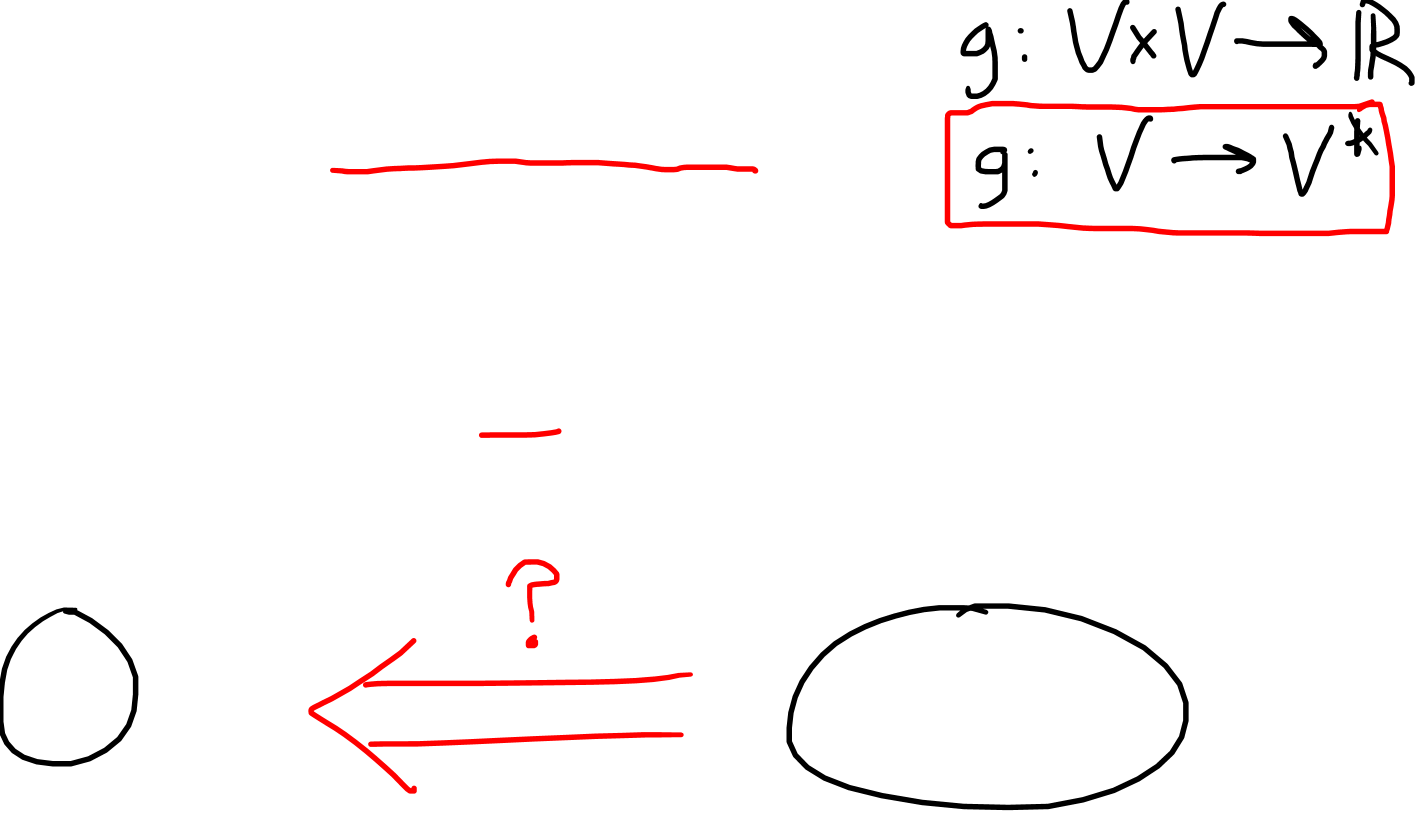 g: V×V → ℝ
g: V → V*
?